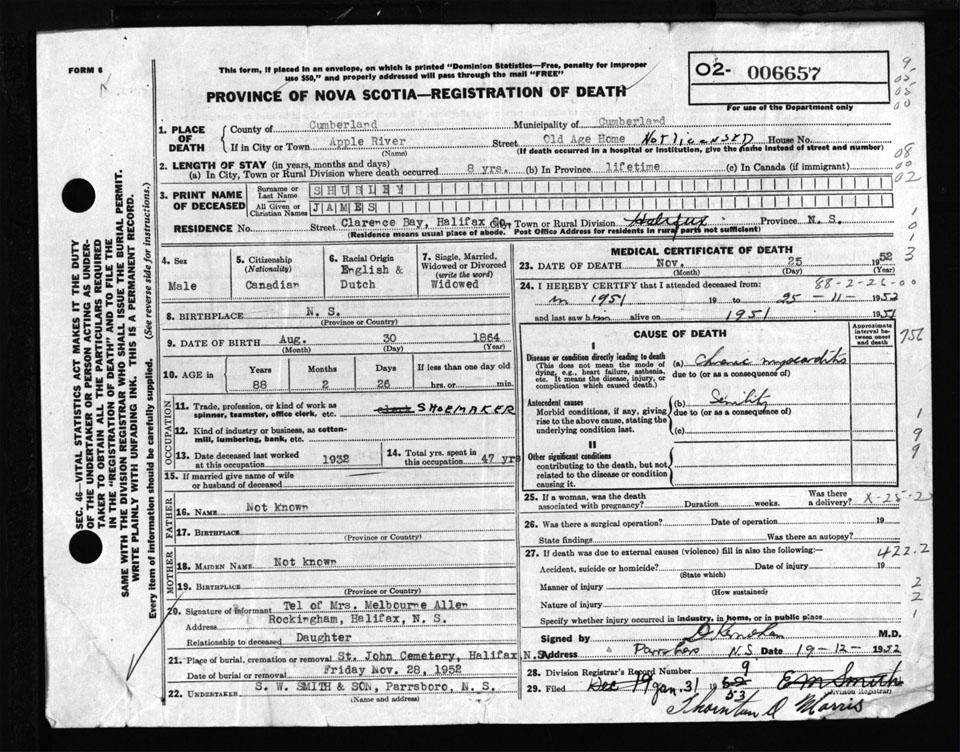 FORM 6
This form, if placed in an envelope, on which is printed "Dominion Statistics—Free, penalty for improper
use $50," and properly addressed will pass through the mail "FREE"
PROVINCE OF NOVA SCOTIA—REGISTRATION OF DEATH
02- 006657
For use of the Department only
SEC. 46—VITAL STATISTICS ACT MAKES IT THE DUTY
OF THE UNDERTAKER OR PERSON ACTING AS UNDER-
TAKER TO OBTAIN ALL THE PARTICULARS REQUIRED
IN THE "REGISTRATION OF DEATH" AND TO FILE THE
SAME WITH THE DIVISION REGISTRAR WHO SHALL ISSUE THE BURIAL PERMIT.
WRITE PLAINLY WITH UNFADING INK. THIS IS A PERMANENT RECORD.
Every item of information should be carefully supplied. (See reverse side for instructions.)
1. PLACE OF DEATH
County of Cumberland Municipality of Cumberland
If in City or Town Apple River Street Old Age Home NOT licENSED House No.
(Name) (If death occurred in a hospital or institution, give the name instead of street and number)
2. LENGTH OF STAY (in years, months and days)
(a) In City, Town or Rural Division where death occurred 8 yrs. (b) In Province lifetime (c) In Canada (if immigrant)
3. PRINT NAME OF DECEASED
Surname or Last Name SHUBLEY
All Given or Christian Names JAMES
RESIDENCE No. Street Clarence Bay, Halifax Co. City, Town or Rural Division Halifax Province N. S.
(Residence means usual place of abode. Post Office Address for residents in rural parts not sufficient)
4. Sex
Male
5. Citizenship (Nationality)
Canadian
6. Racial Origin
English & Dutch
7. Single, Married, Widowed or Divorced (write the word)
Widowed
8. BIRTHPLACE N. S.
(Province or Country)
9. DATE OF BIRTH Aug. 30 1864
(Month) (Day) (Year)
10. AGE in Years Months Days If less than one day old
88 2 26 hrs. or min.
OCCUPATION
11. Trade, profession, or kind of work as spinner, teamster, office clerk, etc. SHOEMAKER
12. Kind of industry or business, as cotten-mill, lumbering, bank, etc.
13. Date deceased last worked at this occupation 1932
14. Total yrs. spent in this occupation 47 yrs
15. If married give name of wife or husband of deceased
FATHER
16. NAME Not known
17. BIRTHPLACE
(Province or Country)
MOTHER
18. MAIDEN NAME Not known
19. BIRTHPLACE
(Province or Country)
20. Signature of informant Tel of Mrs. Melbourne Allen
Address Rockingham, Halifax, N. S.
Relationship to deceased Daughter
21. Place of burial, cremation or removal St. John Cemetery, Halifax N.S.
Date of burial or removal Friday Nov. 28, 1952
22. UNDERTAKER S. W. SMITH & SON, Parrsboro, N. S.
(Name and address)
MEDICAL CERTIFICATE OF DEATH
23. DATE OF DEATH Nov. 25 1952
(Month) (Day) (Year)
24. I HEREBY CERTIFY that I attended deceased from: 88-2-26-00
in 1951 19 to 25-11-1952
and last saw him alive on 1951 1951
CAUSE OF DEATH
Approximate interval between onset and death
I
Disease or condition directly leading to death
(This does not mean the mode of dying, e.g., heart failure, asthenia, etc. It means the disease, injury, or complication which caused death.)
(a) Chronic myocarditis
due to (or as a consequence of)
Antecedent causes
Morbid conditions, if any, giving rise to the above cause, stating the underlying condition last.
(b) Senility
due to (or as a consequence of)
(c)
II
Other significant conditions
contributing to the death, but not related to the disease or condition causing it.
25. If a woman, was the death associated with pregnancy? Duration weeks. Was there a delivery?
26. Was there a surgical operation? Date of operation 19
State findings Was there an autopsy?
27. If death was due to external causes (violence) fill in also the following:— 422.2
Accident, suicide or homicide? Date of injury 19
(State which)
Manner of injury
(How sustained)
Nature of injury
Specify whether injury occurred in industry, in home, or in public place
Signed by M.D.
Address Parrsboro N.S. Date 19-12-1952
28. Division Registrar's Record Number 9
29. Filed Dec 19 Jan. 31 1952 53 E M Smith
(Division Registrar)
Thornton D Morris